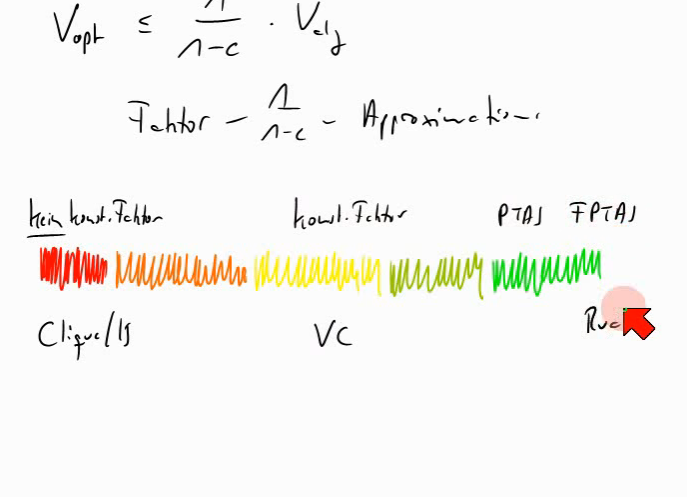 V_opt ≤ 1/1-c · V_alg
Faktor - 1/1-c - Approximation.
kein konst. Faktor konst. Faktor PTAS FPTAS
Clique/IS VC Ruc